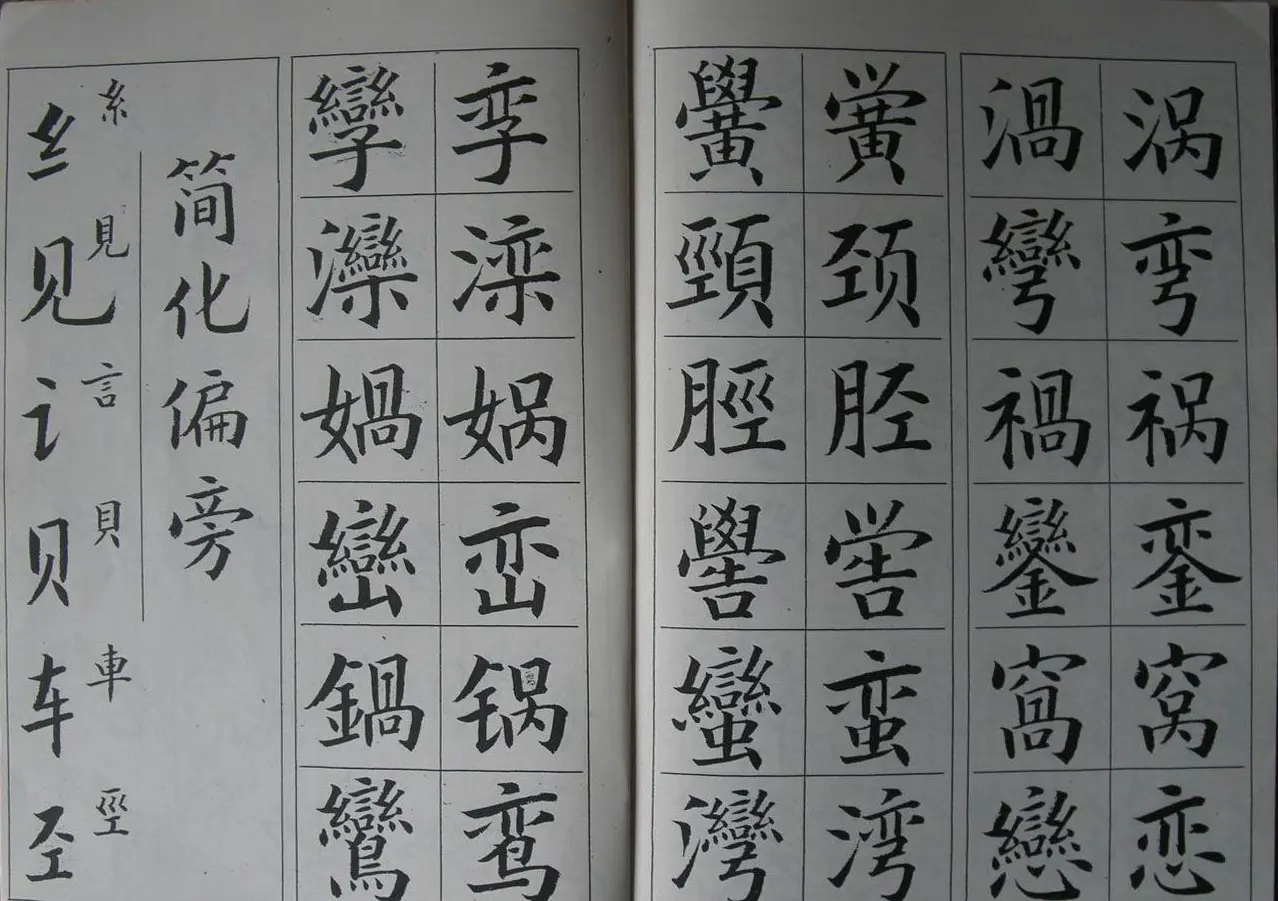 涡弯祸銮窝恋
渦彎禍鑾窩戀
黉颈胫喾蛮湾
黌頸脛嚳蠻灣
孪滦娲峦锅鸾
孿灤媧巒鍋鸞
简化偏旁
糸見言貝車巠
纟见讠贝车𢀖